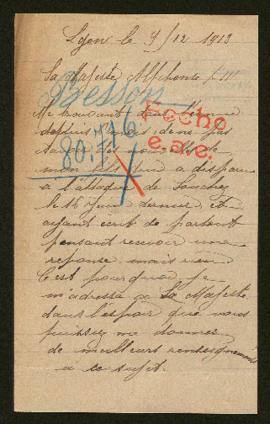 Lyon le 9/12 1913
Sa Majesté Alphonse
Besson
Fecho
e.a.e.
depuis pas
80.
mon a disparu
à l'attaque de Souchez
le 16 Juin dernier et
ayant écrit de partout
pensant recevoir une
réponse mais rien
C'est pourquoi je
m'adresse a Sa Majesté
dans l'espoir que vous
puissiez me donner
de meilleurs renseignements
à ce sujet.